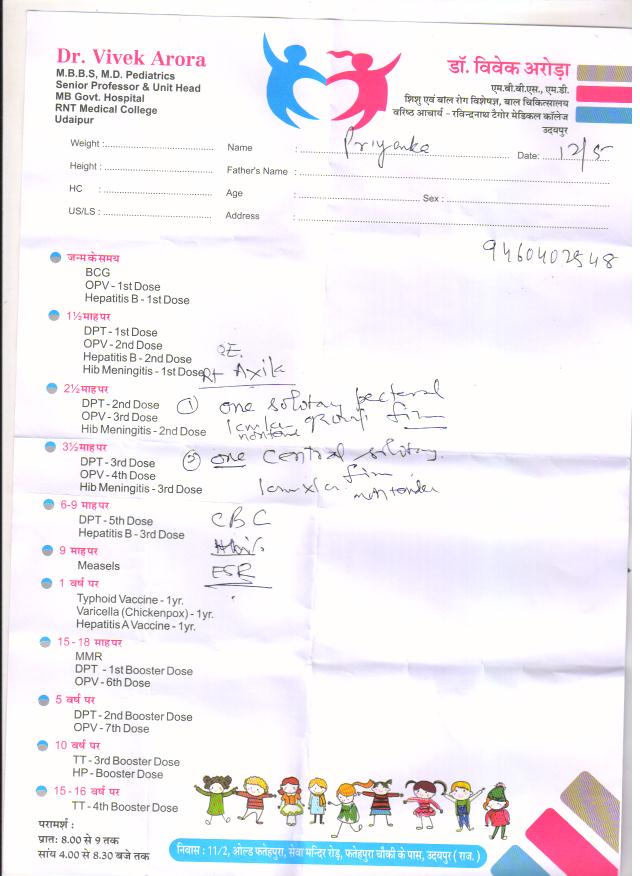 Dr. Vivek Arora
M.B.B.S, M.D. Pediatrics
Senior Professor & Unit Head
MB Govt. Hospital
RNT Medical College
Udaipur
डॉ. विवेक अरोड़ा
एम.बी.बी.एस., एम.डी.
शिशु एवं बाल रोग विशेषज्ञ, बाल चिकित्सालय
वरिष्ठ आचार्य - रविन्द्रनाथ टैगोर मेडिकल कॉलेज
उदयपुर
Weight : Name : Priyanka Date: 12/5
Height : Father's Name :
HC : Age : Sex :
US/LS : Address :
9460402548
जन्म के समय
BCG
OPV - 1st Dose
Hepatitis B - 1st Dose
1½ माह पर
DPT - 1st Dose
OPV - 2nd Dose
Hepatitis B - 2nd Dose
Hib Meningitis - 1st Dose
Rt Axila
2½ माह पर
DPT - 2nd Dose
OPV - 3rd Dose
Hib Meningitis - 2nd Dose
① one solotary pectoral
group firm
3½ माह पर
DPT - 3rd Dose
OPV - 4th Dose
Hib Meningitis - 3rd Dose
② one central solotary
firm
non tender
6-9 माह पर
DPT - 5th Dose
Hepatitis B - 3rd Dose
CBC
9 माह पर
Measels
ESR
1 वर्ष पर
Typhoid Vaccine - 1yr.
Varicella (Chickenpox) - 1yr.
Hepatitis A Vaccine - 1yr.
15 - 18 माह पर
MMR
DPT - 1st Booster Dose
OPV - 6th Dose
5 वर्ष पर
DPT - 2nd Booster Dose
OPV - 7th Dose
10 वर्ष पर
TT - 3rd Booster Dose
HP - Booster Dose
15 - 16 वर्ष पर
TT - 4th Booster Dose
परामर्श :
प्रातः 8.00 से 9 तक
सांय 4.00 से 8.30 बजे तक
निवास : 11/2, ओल्ड फतेहपुरा, सेवा मन्दिर रोड़, फतेहपुरा चौकी के पास, उदयपुर ( राज. )